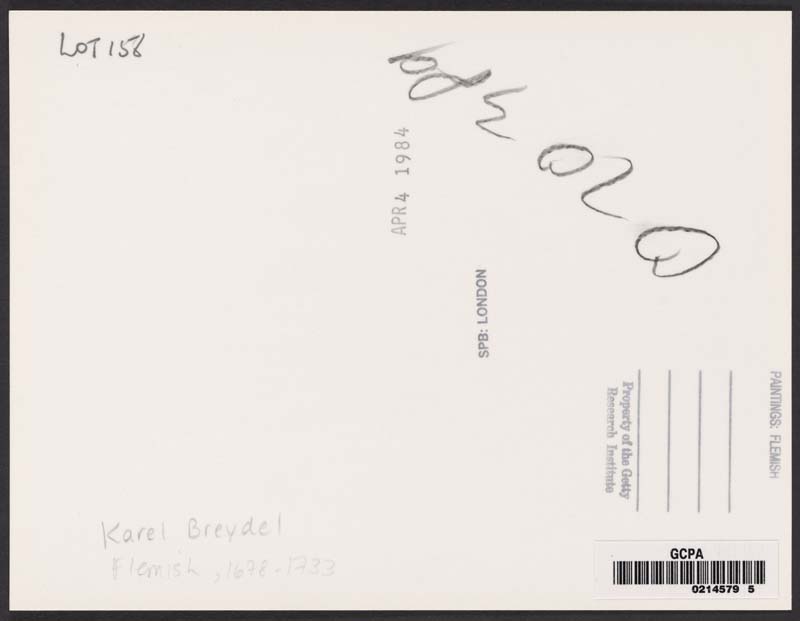 LOT 158
APR 4 1984
SPB: LONDON
PAINTINGS: FLEMISH
Property of the Getty
Research Institute
Karel Breydel
Flemish, 1678-1733
GCPA
0214579 5